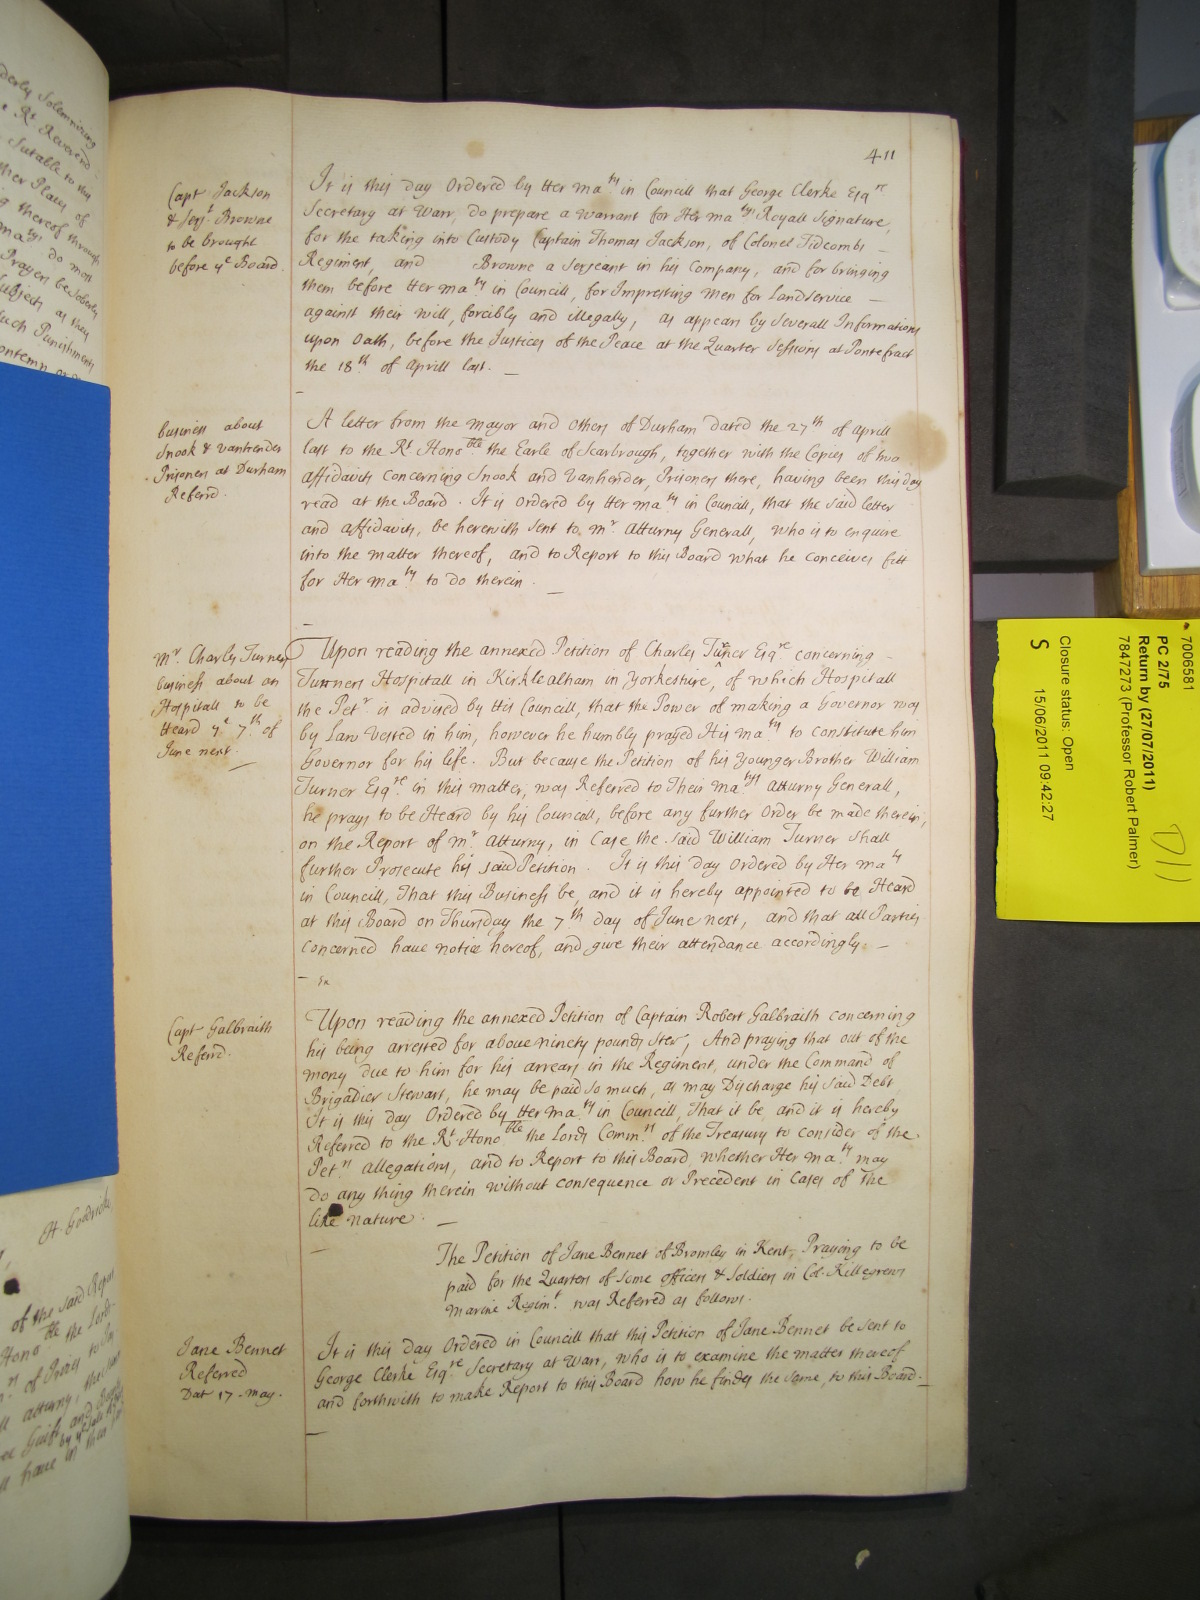 411
Capt Jackson
& Serj.t Browne
to be brought
before y.e Board.
It is this day Ordered by Her Ma.ty in Councill that George Clerke Esq.re
Secretary at Warr, do prepare a Warrant for Her Ma.tys Royall Signature,
for the taking into Custody Captain Thomas Jackson, of Colonel Tidcombs
Regiment, and Browne a Serjeant in his Company, and for bringing
them before Her Ma.ty in Councill, for Impressing Men for Landservice
against their will, forcibly and illegally, as appears by Severall Informations
upon Oath, before the Justices of the Peace at the Quarter Sessions at Pontefract
the 18.th of Aprill last.
Business about
Snook & Vanhender
Prisoners at Durham
Referrd.
A letter from the Mayor and Others of Durham dated the 27.th of Aprill
last to the R.t Hono.ble the Earle of Scarbrough, together with the Copies of two
affidavits concerning Snook and Vanhender, Prisoners there, having been this day
read at the Board. It is Ordered by Her Ma.ty in Councill, that the said letter
and affidavits, be herewith sent to M.r Atturny Generall, who is to enquire
into the matter thereof, and to Report to this Board what he conceives fitt
for Her Ma.ty to do therein.
M.r Charles Turners
business about an
Hospitall to be
Heard y.e 7.th of
June next.
Upon reading the annexed Petition of Charles Turner Esq.re concerning
Turners Hospitall in Kirklealham in Yorkesture, of which Hospitall
the Pet.r is advised by His Councill, that the Power of making a Governor was
by Law Vested in him, however he humbly prayed His Ma.ty to constitute him
Governor for his life. But because the Petition of his Younger Brother William
Turner Esq.re in this matter, was Referred to Their Ma.tys Atturny Generall,
he prays to be Heard by his Councill, before any further Order be made therein,
on the Report of M.r Atturny, in Case the said William Turner shall
further Prosecute his said Petition. It is this day Ordered by Her Ma.ty
in Councill, That this Business be, and it is hereby appointed to be Heard
at this Board on Thursday the 7.th day of June next, and that all Parties
concerned have notice hereof, and give their attendance accordingly.
Ex
Capt Galbraith
Referrd.
Upon reading the annexed Petition of Captain Robert Galbraith concerning
his being arrested for above ninety pounds Ster, And praying that out of the
mony due to him for his arrears in the Regiment, under the Command of
Brigadier Stewart, he may be paid so much, as may Discharge his said Debt
It is this day Ordered by Her Ma.ty in Councill, That it be, and it is hereby
Referred to the R.t Hono.ble the Lords Comm.rs of the Treasury to consider of the
Pet.rs allegations, and to Report to this Board whether Her Ma.ty may
do any thing therein without consequence or Precedent in Cases of the
like nature.
The Petition of Jane Bennet of Bromley in Kent, Praying to be
paid for the Quarters of some officers & Soldiers in Col. Killegrews
Marine Regim.t was Referred as follows.
Jane Bennet
Referred
Dat 17 May.
It is this day Ordered in Councill that this Petition of Jane Bennet be sent to
George Clerke Esq.re Secretary at Warr, who is to examine the matter thereof
and forthwith to make Report to this Board how he findes the same, to this Board.
7006581
PC 2/75
Return by (27/07/2011)
7847273 (Professor Robert Palmer)
Closure status: Open
S 15/06/2011 09:42:27
D11